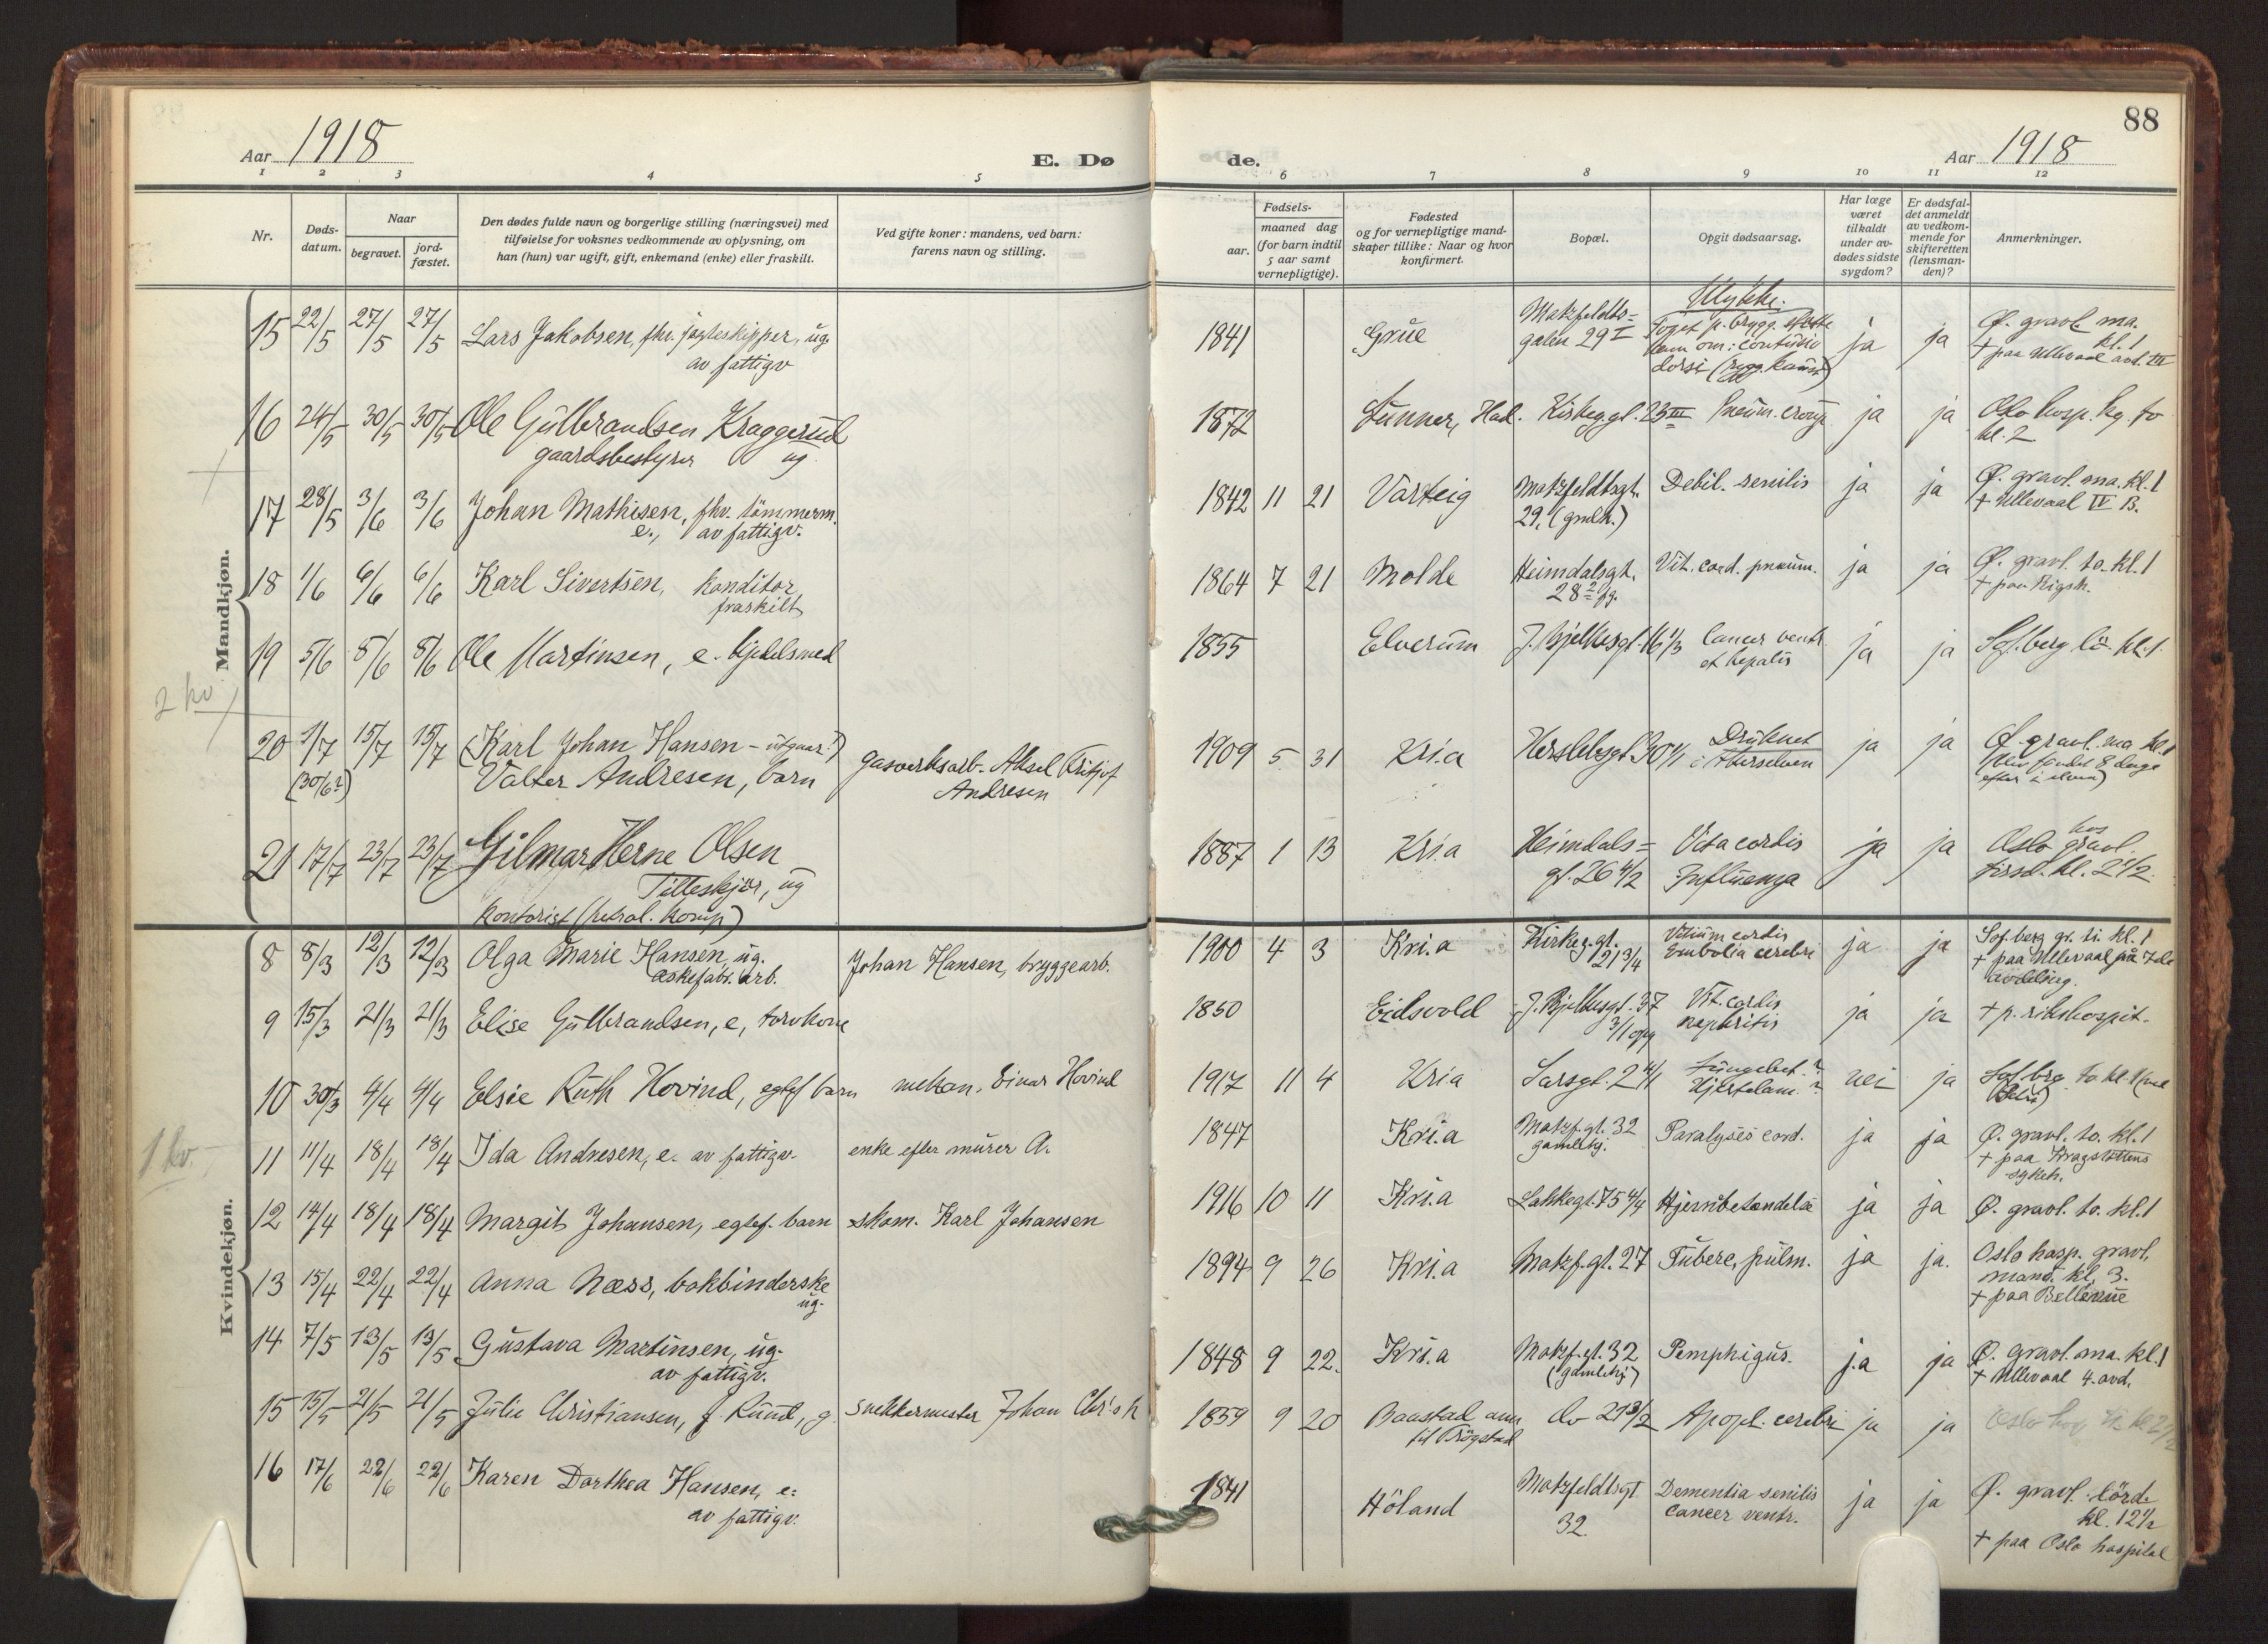 88
Aar 1918
E. Dø
de.
Aar 1918
1 2 3 4 5 6 7 8 9 10 11 12
Nr.
Døds-
datum.
Naar
begravet.
jord-
fæstet.
Den dødes fulde navn og borgerlige stilling (næringsvei) med
tilføielse for voksnes vedkommende av oplysning, om
han (hun) var ugift, gift, enkemand (enke) eller fraskilt.
Ved gifte koner: mandens, ved barn:
farens navn og stilling.
Fødsels-
aar.
maaned dag
(for barn indtil
5 aar samt
vernepligtige).
Fødested
og for vernepligtige mand-
skaper tillike: Naar og hvor
konfirmert.
Bopæl.
Opgit dødsaarsag.
Har læge
været
tilkaldt
under av-
dødes sidste
sygdom?
Er dødsfal-
det anmeldt
av vedkom-
mende for
skifteretten
(lensman-
den)?
Anmerkninger.
Mandkjøn.
15 22/5 27/5 27/5 Lars Jakobsen, fhv. jagteskipper, ug.
av fattigv
1841 Grue
Matzfeldts=
gaten 29 I
Ulykke.
dorsi
ja ja
Ø. gravl. ma.
kl. 1
+ paa Ullevaal avd. III
16 24/5 30/5 30/5 Ole Gulbrandsen Kraggerud
gaardsbestyrer ug
1872 Lunner, Had. Kirkeg.gt. 23 III Pneum. croup. ja ja
Oslo hosp. kg. to
kl. 2
17 28/5 3/6 3/6 Johan Mathisen, fhv. tömmerm.
e., av fattigv.
1842 11 21 Varteig
Matzfeldtsgt.
29, (gmlh.)
Debil. senilis ja ja
Ø. gravl. ma. kl. 1
+ Ullevaal IV B.
18 1/6 6/6 6/6 Karl Sivertsen, konditor
fraskilt
1864 7 21 Molde
Heimdalsgt.
28
Vit. cord. pneum. ja ja
Ø. gravl. to. kl. 1
+ paa Rigsh.
19 5/6 8/6 8/6 Ole Martinsen, e. kjedelsmed
1855 Elverum J. Bjelkesgt. 16 1/3
Cancer ventr.
et hepatis
ja ja Sof.berg lö. kl. 1
2 kv
20 1/7 15/7 15/7 (Karl Johan Hansen - utgaar!)
(30/6?) Valter Andresen, barn
gasverksarb. Aksel Fritjof
Andresen
1909 5 31 Kri.a Herslebsgt. 30 1/1
Druknet
i Akerselven
ja ja
Ø. gravl. ma kl. 1
(blev fundet 8 dage
efter i elven)
21 17/7 23/7 23/7 Hilmar Herne Olsen
Titteskjör, ug
kontorist (petrol. komp)
1887 1 13 Kri.a
Heimdals=
gt. 26 4/2
Vita cordis
Influenza
ja ja
Oslo hos
gravl.
tirsd. kl. 2 1/2
Kvindekjøn.
8 8/3 12/3 12/3 Olga Marie Hansen, ug.
æskefabr. arb.
Johan Hansen, bryggearb.
1900 4 3 Kri.a
Kirkeg.gt.
21 3/4
Vitium cordis
Embolia cerebri
ja ja
Sof.berg gr. ti. kl. 1
+ paa Ullevaal
avdeling.
9 15/3 21/3 21/3 Elise Gulbrandsen, e, torvkone
1850 Eidsvold
J. Bjelkesgt. 37
3/1 opg
Vit. cordis
nephritis
ja ja + p. rikshospit.
10 30/3 4/4 4/4 Elsie Ruth Hovind, egtef barn mekan. Einar Hovind
1917 11 4 Kria Sarsgt. 2 4/1
Lungebet. ?
Hjertelam. ?
nei ja
1 kv.
11 11/4 18/4 18/4 Ida Andresen, e. av fattigv. enke efter murer A.
1847 Kri.a
Matzf.gt. 32
gamlehj.
Paralyses cord. ja ja
Ø. gravl. to. kl. 1
+ paa Kragstöttens
sykeh.
12 14/4 18/4 18/4 Margit Johansen, egtef. barn skom. Karl Johansen
1916 10 11 Kri.a Lakkegt. 75 4/4 Hjernebetændelse ja ja Ø. gravl. to. kl. 1
13 15/4 22/4 22/4 Anna Næss, bokbinderske
ug.
1894 9 26 Kri.a Matzf.gt. 27 Tuberc. pulm. ja ja.
Oslo hosp. gravl.
mand. kl. 3.
+ paa Bellevue
14 7/5 13/5 13/5 Gustava Martinsen, ug.
av fattigv.
1848 9 22. Kri.a
Matzf.gt. 32
(gamlehj)
Pemphigus. ja ja
Ø. gravl. ma. kl. 1
+ Ullevaal 4. avd.
15 15/5 21/5 21/5 Julie Christiansen, f. Ruud, g. snekkermester Johan Chr's h
1859 9 20 Baastad ann
til Trögstad
do 21 3/2 Apopl. cerebri ja ja Oslo hosp ti kl 2 1/2
16 17/6 22/6 22/6 Karen Dorthea Hansen, e.
av fattigv.
1841 Höland
Matzfeldtsgt
32.
Dementia senilis
Cancer ventr.
ja ja
Ø. gravl. lörd.
kl. 12 1/2
+ paa Oslo hospital